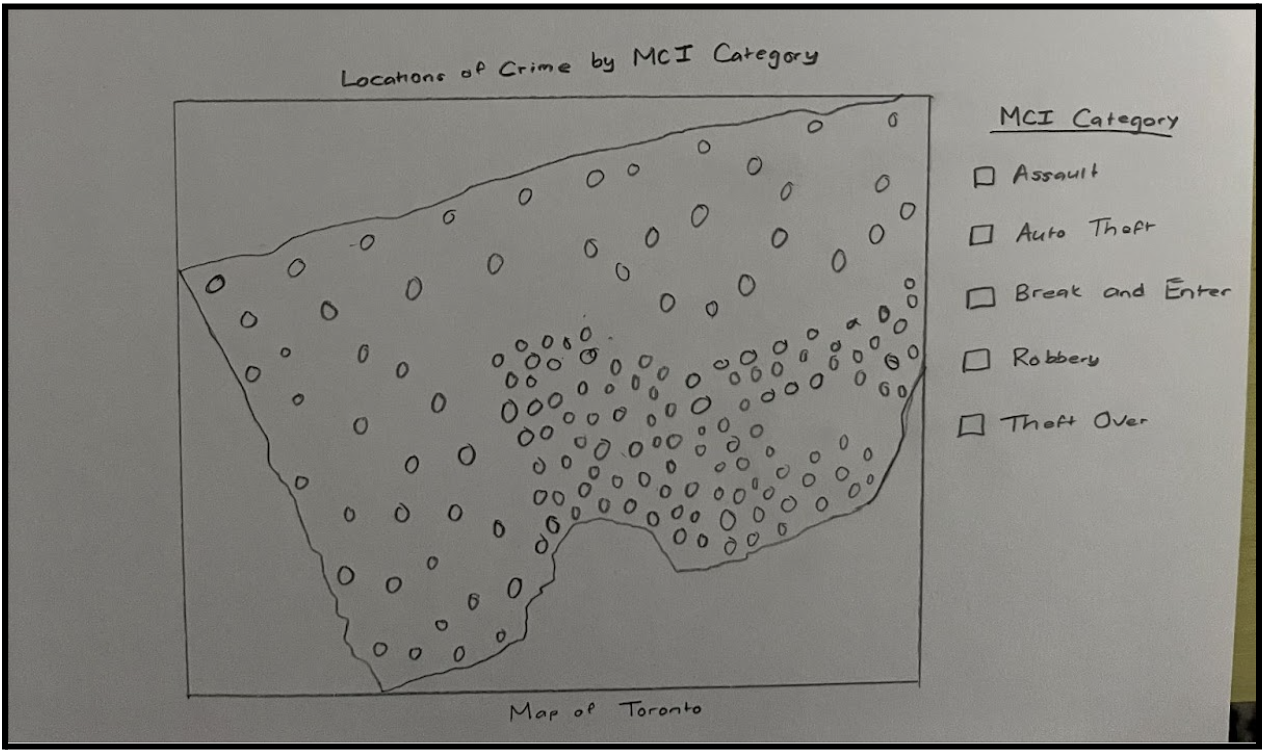 Locations of Crime by MCI Category
MCI Category
Assault
Auto Theft
Break and Enter
Robbery
Theft Over
Map of Toronto